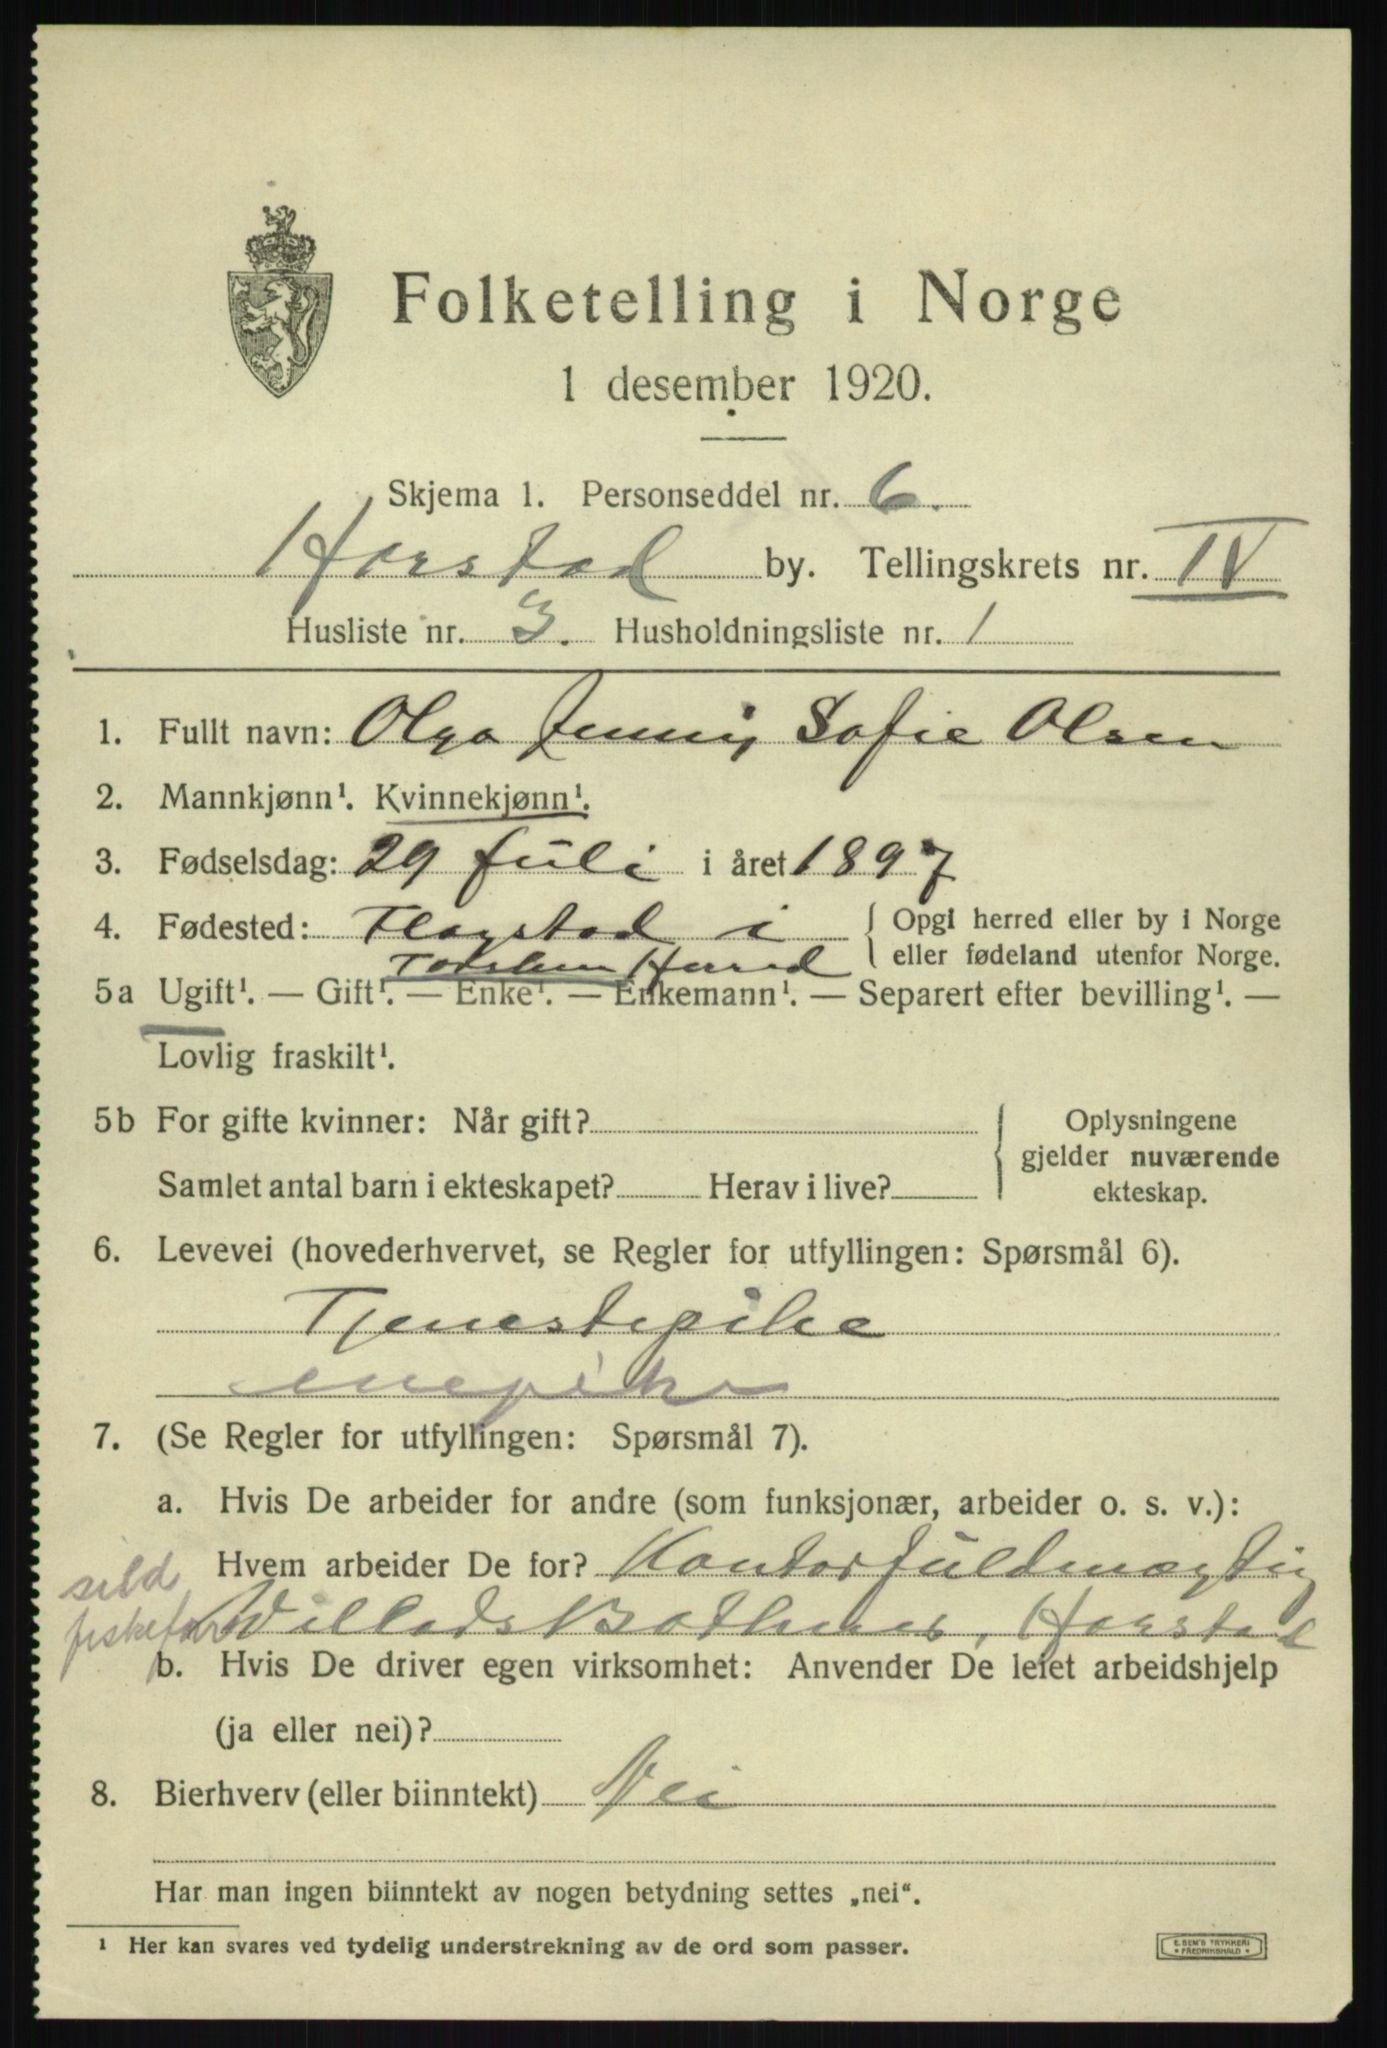 Folketelling i Norge
1 desember 1920.
Skjema 1. Personseddel nr. 6.
Harstad by. Tellingskrets nr. IV
Husliste nr. 3. Husholdningsliste nr. 1
1. Fullt navn: Olga Jenny Sofie Olsen
2. Mannkjønn¹. Kvinnekjønn¹.
3. Fødselsdag: 29 juli i året 1897
4. Fødested: Flagstad i { Opgi herred eller by i Norge
Torsken Herred eller fødeland utenfor Norge.
5a Ugift¹. — Gift¹. — Enke¹. — Enkemann¹. — Separert efter bevilling¹. —
Lovlig fraskilt¹.
5b For gifte kvinner: Når gift? { Oplysningene
gjelder nuværende
Samlet antal barn i ekteskapet? Herav i live? ekteskap.
6. Levevei (hovederhvervet, se Regler for utfyllingen: Spørsmål 6).
Tjenestepike
enepike
7. (Se Regler for utfyllingen: Spørsmål 7).
a. Hvis De arbeider for andre (som funksjonær, arbeider o. s. v.):
Hvem arbeider De for? Kontorfuldmægtig
sild
fiskefor Willads Bothner, Harstad
b. Hvis De driver egen virksomhet: Anvender De leiet arbeidshjelp
(ja eller nei)?
8. Bierhverv (eller biinntekt) Nei
Har man ingen biinntekt av nogen betydning settes „nei“.
¹ Her kan svares ved tydelig understrekning av de ord som passer.
E. SEM'S TRYKKERI
FREDRIKSHALD